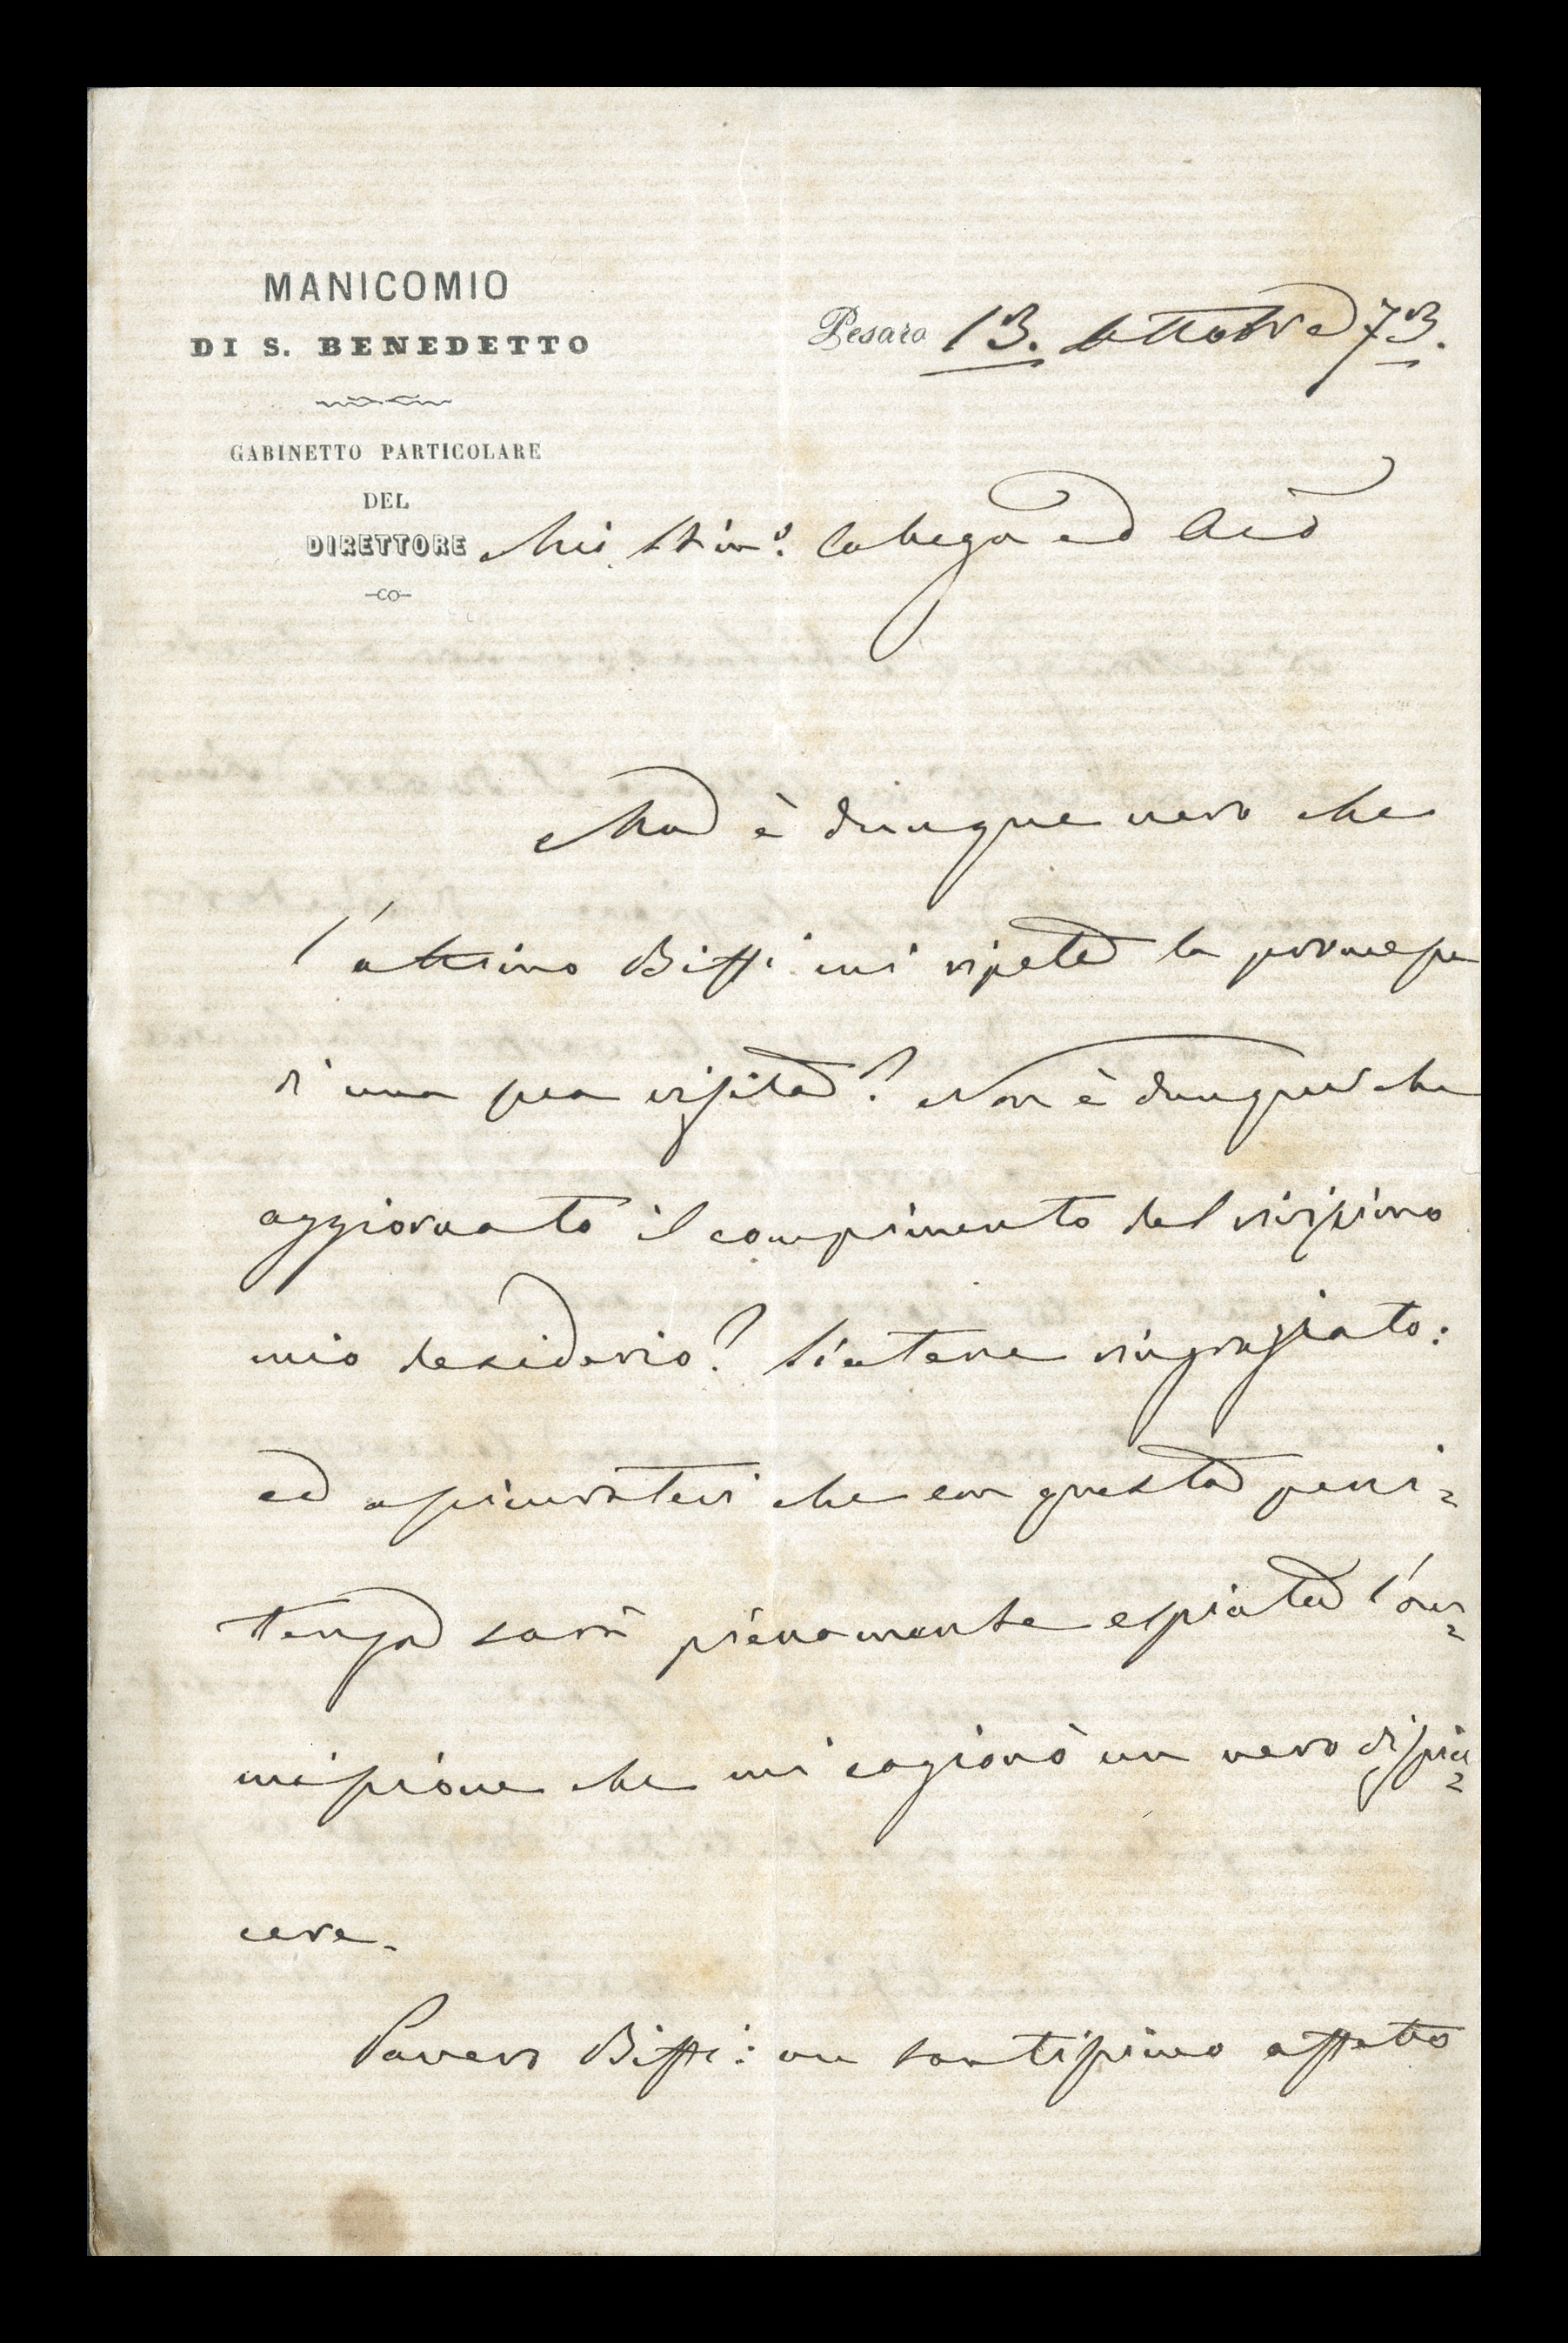 MANICOMIO
DI S. BENEDETTO
GABINETTO PARTICOLARE
DEL
DIRETTORE
Pesaro 13. Ottobre 73.
Mio Stimo. Collega ed
Ma è dunque vero che
l'ottimo Biffi mi ripete la promessa
di una sua visita? Non è dunque che
aggiornato il compimento del vivissimo
mio desiderio? Siatene ringraziato:
ed assicuratevi che con questa peni=
tenza sarà pienamente espiata l'om=
missione che mi cagionò un vero dispia=
cere.
Povero Biffi: un santissimo affetto